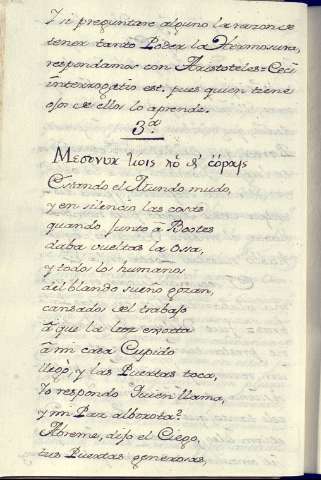 Y si preguntare alguno la razon de
tener tanto Poder la Hermosura,
respondamos con Aristoteles = Ceci
interrogatio est. pues quien tiene
ojos de ellos lo aprende.
3ª
Estando el Mundo mudo,
y en silencio las cosas
quando junto â Bootes
daba vueltas la Ossa,
y todos los humanos
del blando sueño gozan,
cansados del trabajo
â que la luz exorta
â mi casa Cupido
llegò, y las Puertas toca,
Yo respondo Quien llama,
y mi Paz alborota?
Abreme, dijo el Ciego,
tus Puertas generosas,